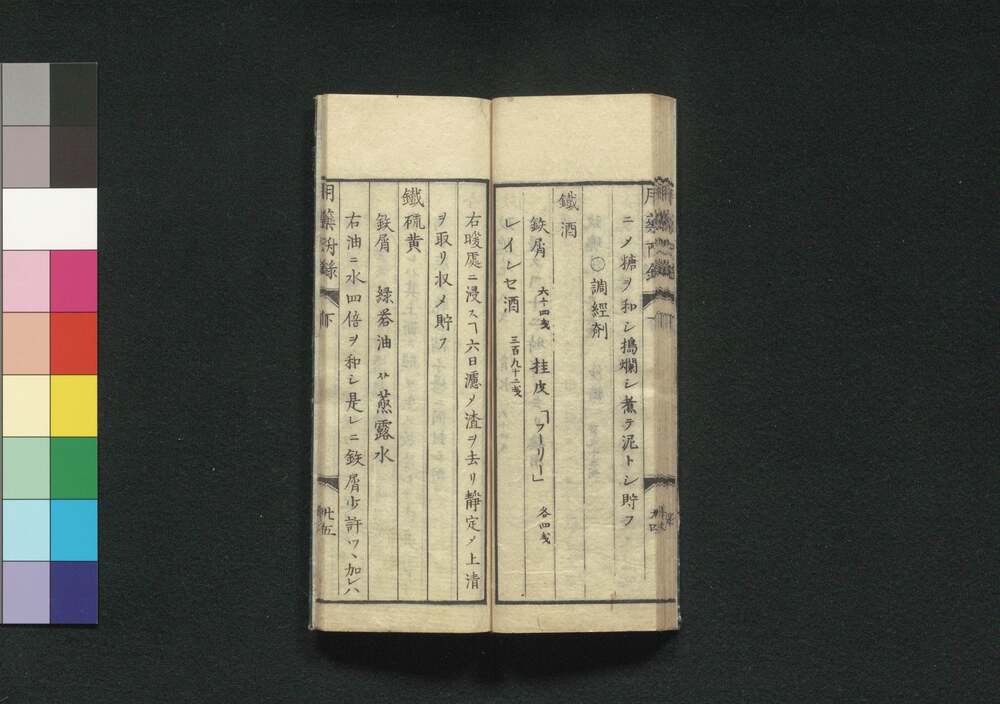 ニメ糖ヲ和シ搗爛シ煮テ泥トシ貯フ
調經剤
鐵酒
鉄屑 六十四戔 桂皮 「フーリー」 各四戔
レインセ酒 三百九十二戔
右暖處ニ浸スヿ六日濾メ渣ヲ去リ静定メ上清
ヲ取リ収メ貯フ
鐵硫黄
鉄屑 緑礬油 蒸露水
右油ニ水四倍ヲ和シ是レニ鉄屑少許ツヽ加レハ
用藥附録 下 廿五